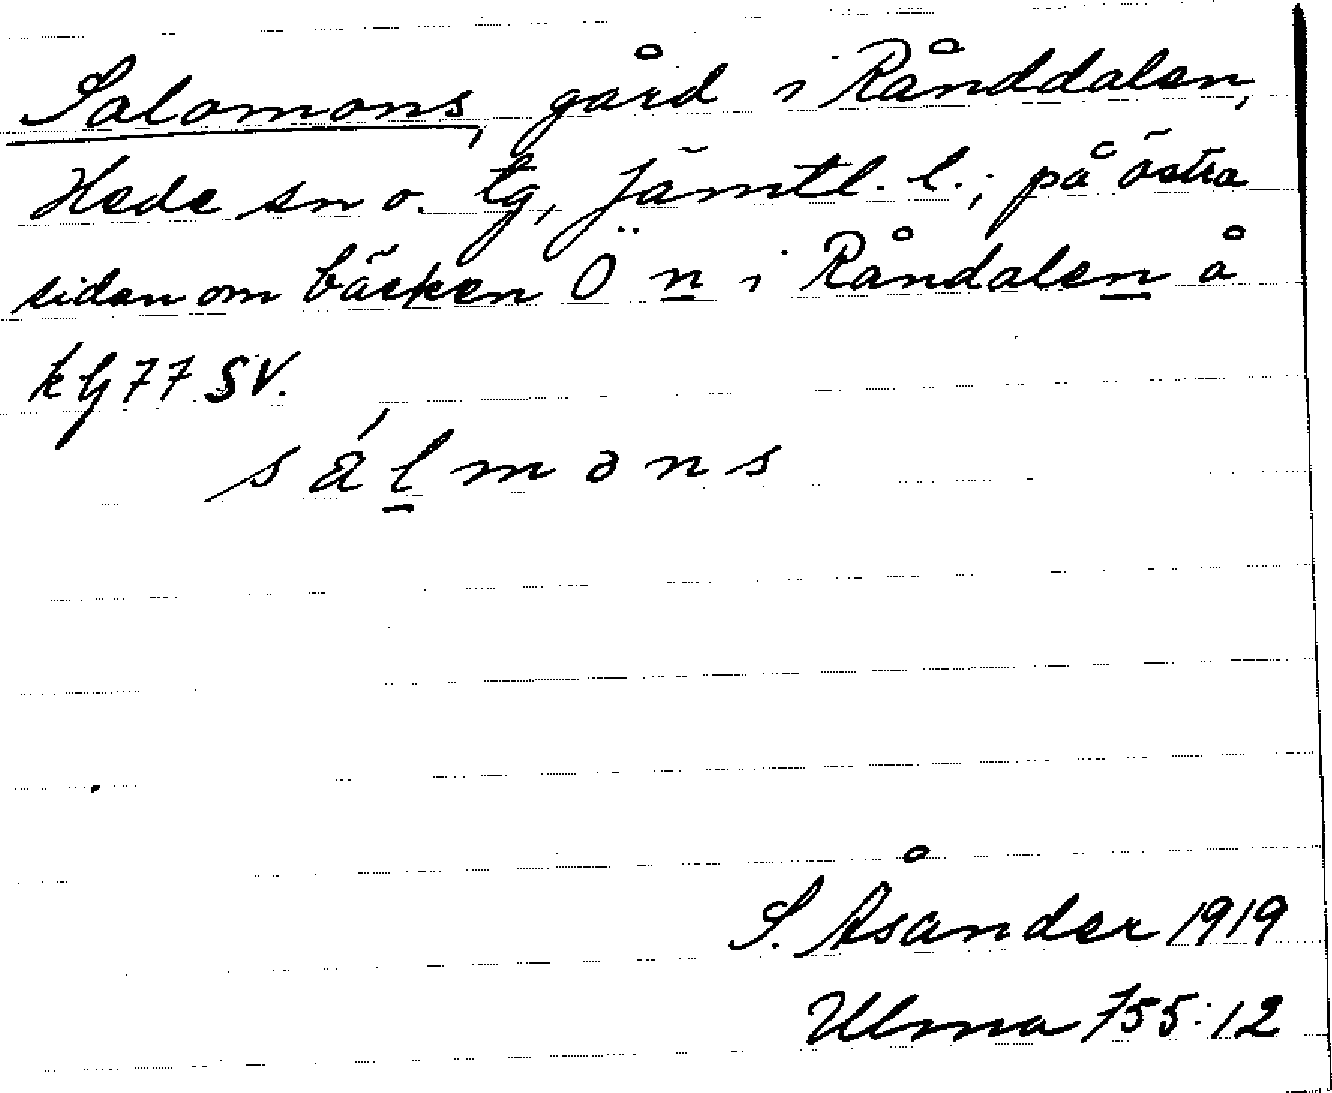 Salomons, gård i Rånddalen,
Hede sn o. tg, Jämtl. l.; på östra
sidan om bäcken Ön i Råndalen å
kbl 77 SV.
sálmons
S. Åsander 1919
Ulma 755:12